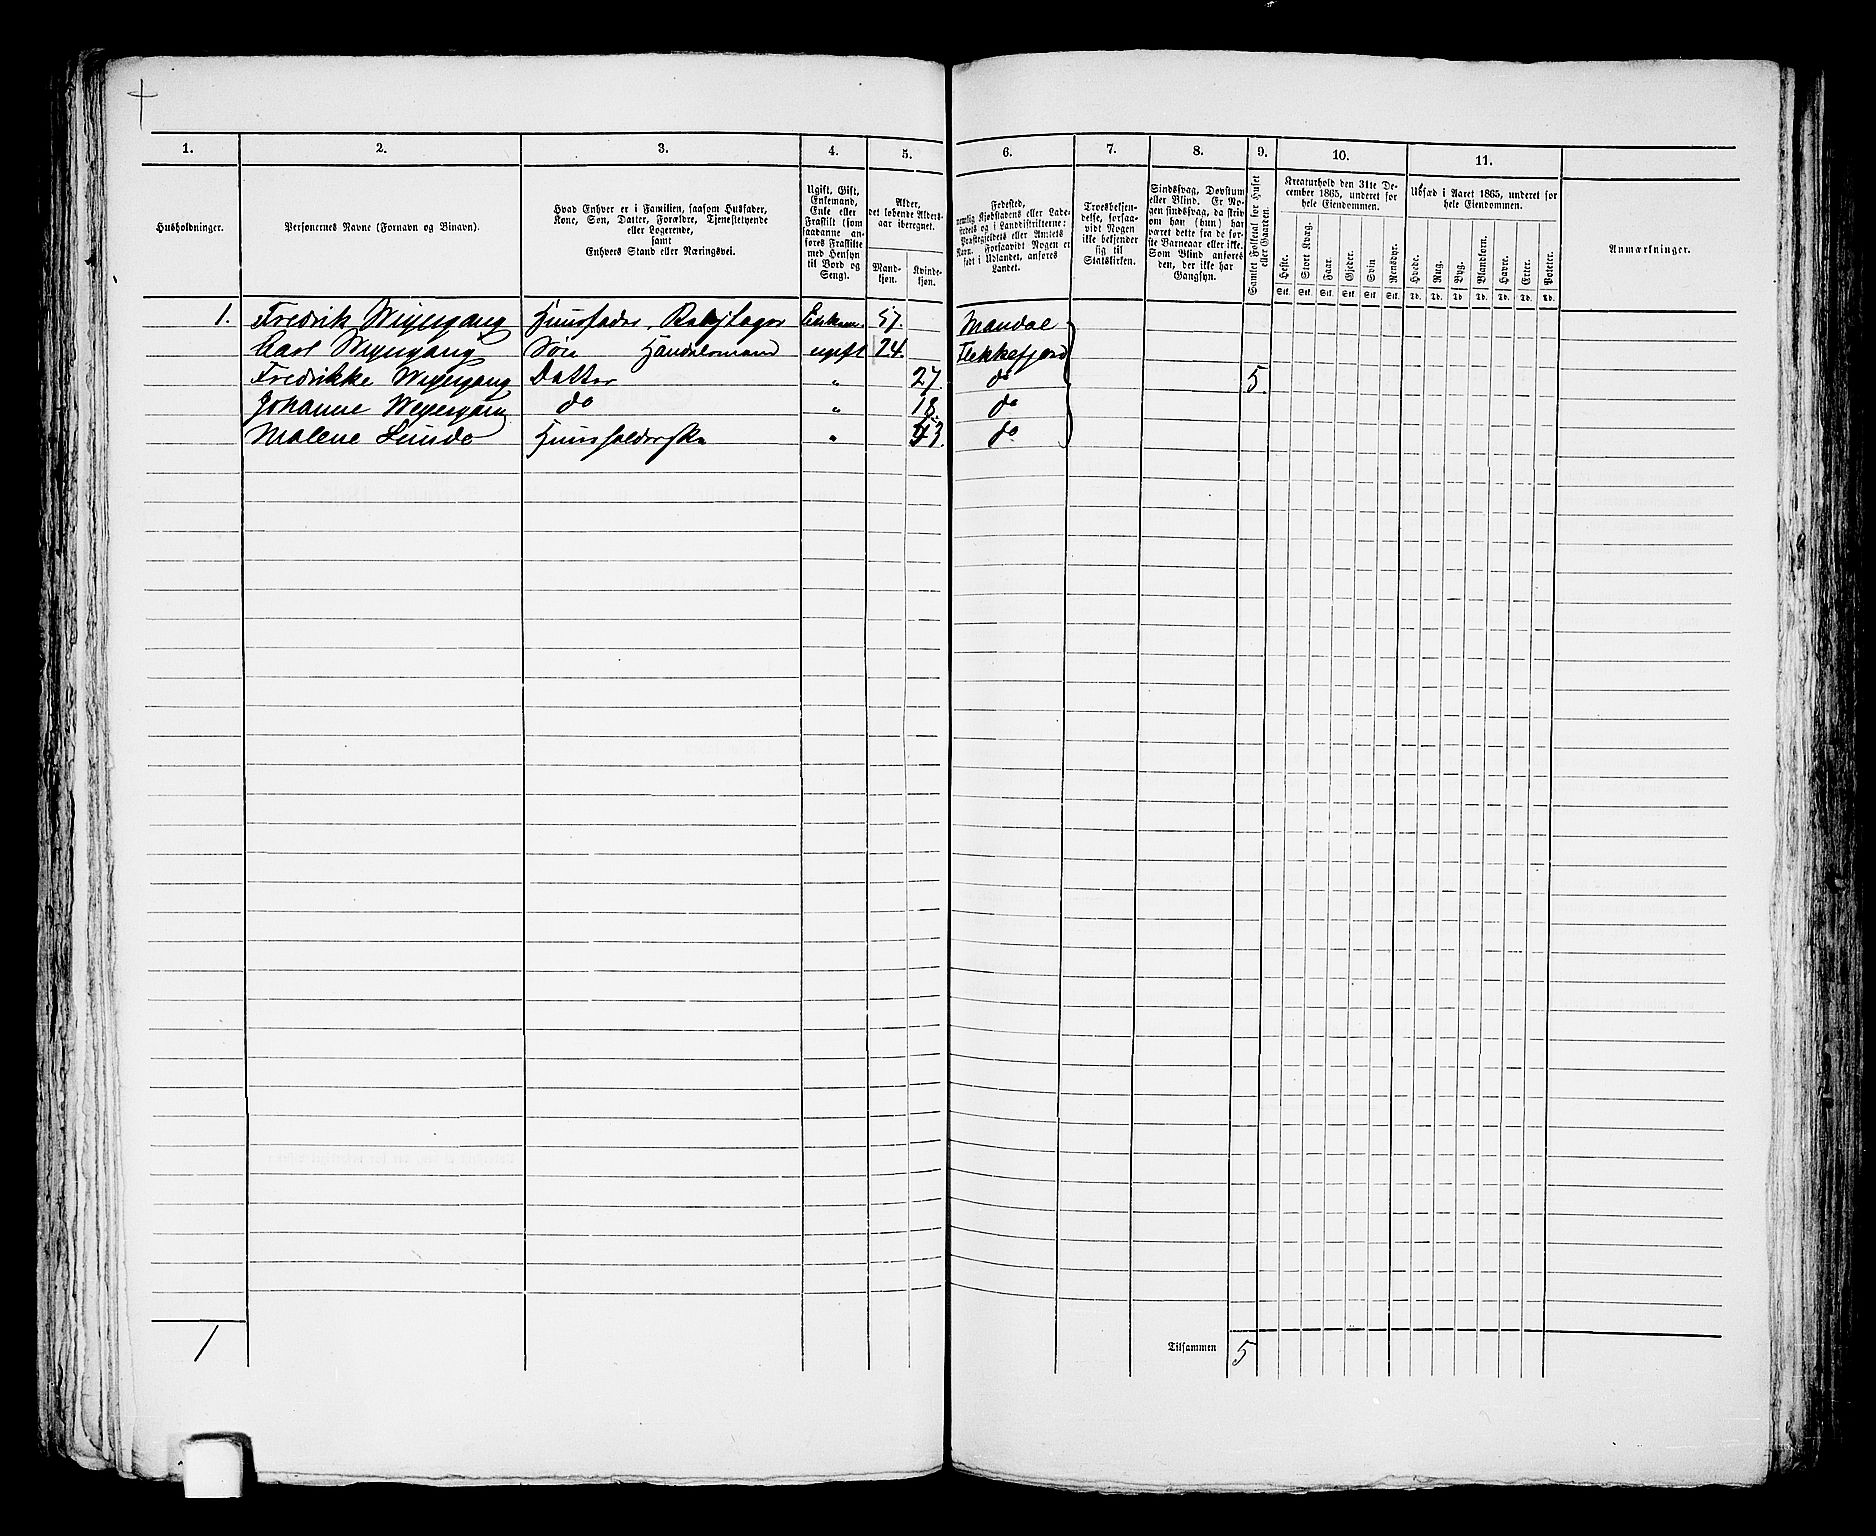 1. 2. 3. 4. 5. 6. 7. 8. 9. 10. 11.
Husholdninger.
Personernes Navne (Fornavn og Binavn).
Hvad Enhver er i Familien, saasom Husfader,
Kone, Søn, Datter, Forældre, Tjenestetyende
eller Logerende,
samt
Enhvers Stand eller Næringsvei.
Ugift, Gift,
Enkemand,
Enke eller
Fraskilt (som
saadanne an-
føres Fraskilte
med Hensyn
til Bord og
Seng).
Alder,
det løbende Alders-
aar iberegnet.
Mand-
kjøn.
Kvinde-
kjøn.
Fødested,
nemlig Kjøbstadens eller Lade-
stedets og i Landdistrikterne:
Præstegjeldets eller Amtets
Navn. Forsaavidt Nogen er
født i Udlandet, anføres
Landet.
Troesbekjen-
delse, forsaa-
vidt Nogen
ikke bekjender
sig til
Statskirken.
Sindssvag, Døvstum
eller Blind. Er No-
gen sindssvag, da skriv
om han (hun) har
været dette fra de før-
ste Barneaar eller ikke.
Som Blind anføres
den, der ikke har
Gangsyn.
Samlet Folketal for Huset
eller Gaarden.
Kreaturhold den 31te De-
cember 1865, underet for
hele Eiendommen.
Heste. Stort Kvæg. Faar. Gjeder. Svin Rensdyr.
Stk. Stk. Stk. Stk. Stk. Stk.
Udsæd i Aaret 1865, underet for
hele Eiendommen.
Hvede. Rug. Byg. Blandkorn. Havre. Erter. Poteter.
Td. Td. Td. Td. Td. Td. Td.
Anmærkninger.
1. Fredrik Weyergang Huusfader, 57. Mandal
Carl Weyergang Søn Handelsmand ugift 24. Flekkefjord
Fredrikke Weyergang Datter " 27. do 5.
Johanne Weyergang do " 18 do
Malene Lunde Huusholderske " 43. do
1
Tilsammen 5